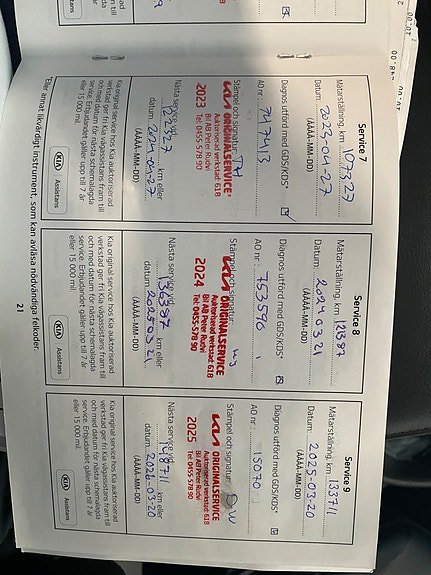 Service 7
Mätarställning, km 107327
Datum: 2023-04-27
(ÅÅÅÅ-MM-DD)
Diagnos utförd med GDS/KDS*
AO nr: 747413
Stämpel och signatur:
KIA ORIGINALSERVICE
Auktoriserad verkstad 618
Bil AB Peter Rudvi
Tel 0455-578 90
2023
Nästa service vid:
122327 km eller
datum: 2024-04-27
(ÅÅÅÅ-MM-DD)
Kia original service hos Kia auktoriserad
verkstad ger fri Kia vägassistans fram till
och med datum för nästa schemalagda
service. Erbjudandet gäller upp till 7 år
eller 15 000 mil.
KIA Assistans
Service 8
Mätarställning, km 121387
Datum: 2024 03 21
(ÅÅÅÅ-MM-DD)
Diagnos utförd med GDS/KDS*
AO nr: 753590
Stämpel och signatur:
KIA ORIGINALSERVICE
Auktoriserad verkstad 618
Bil AB Peter Rudvi
Tel 0455-578 90
2024
Nästa service vid:
136387 km eller
datum: 2025 03 21
(ÅÅÅÅ-MM-DD)
Kia original service hos Kia auktoriserad
verkstad ger fri Kia vägassistans fram till
och med datum för nästa schemalagda
service. Erbjudandet gäller upp till 7 år
eller 15 000 mil.
KIA Assistans
Service 9
Mätarställning, km 133711
Datum: 2025-03-20
(ÅÅÅÅ-MM-DD)
Diagnos utförd med GDS/KDS*
AO nr: 15070
Stämpel och signatur:
KIA ORIGINALSERVICE
Auktoriserad verkstad 618
Bil AB Peter Rudvi
Tel 0455-578 90
2025
Nästa service vid:
148711 km eller
datum: 2026-03-20
(ÅÅÅÅ-MM-DD)
Kia original service hos Kia auktoriserad
verkstad ger fri Kia vägassistans fram till
och med datum för nästa schemalagda
service. Erbjudandet gäller upp till 7 år
eller 15 000 mil.
KIA Assistans
*Eller annat likvärdigt instrument, som kan avläsa nödvändiga felkoder.
21